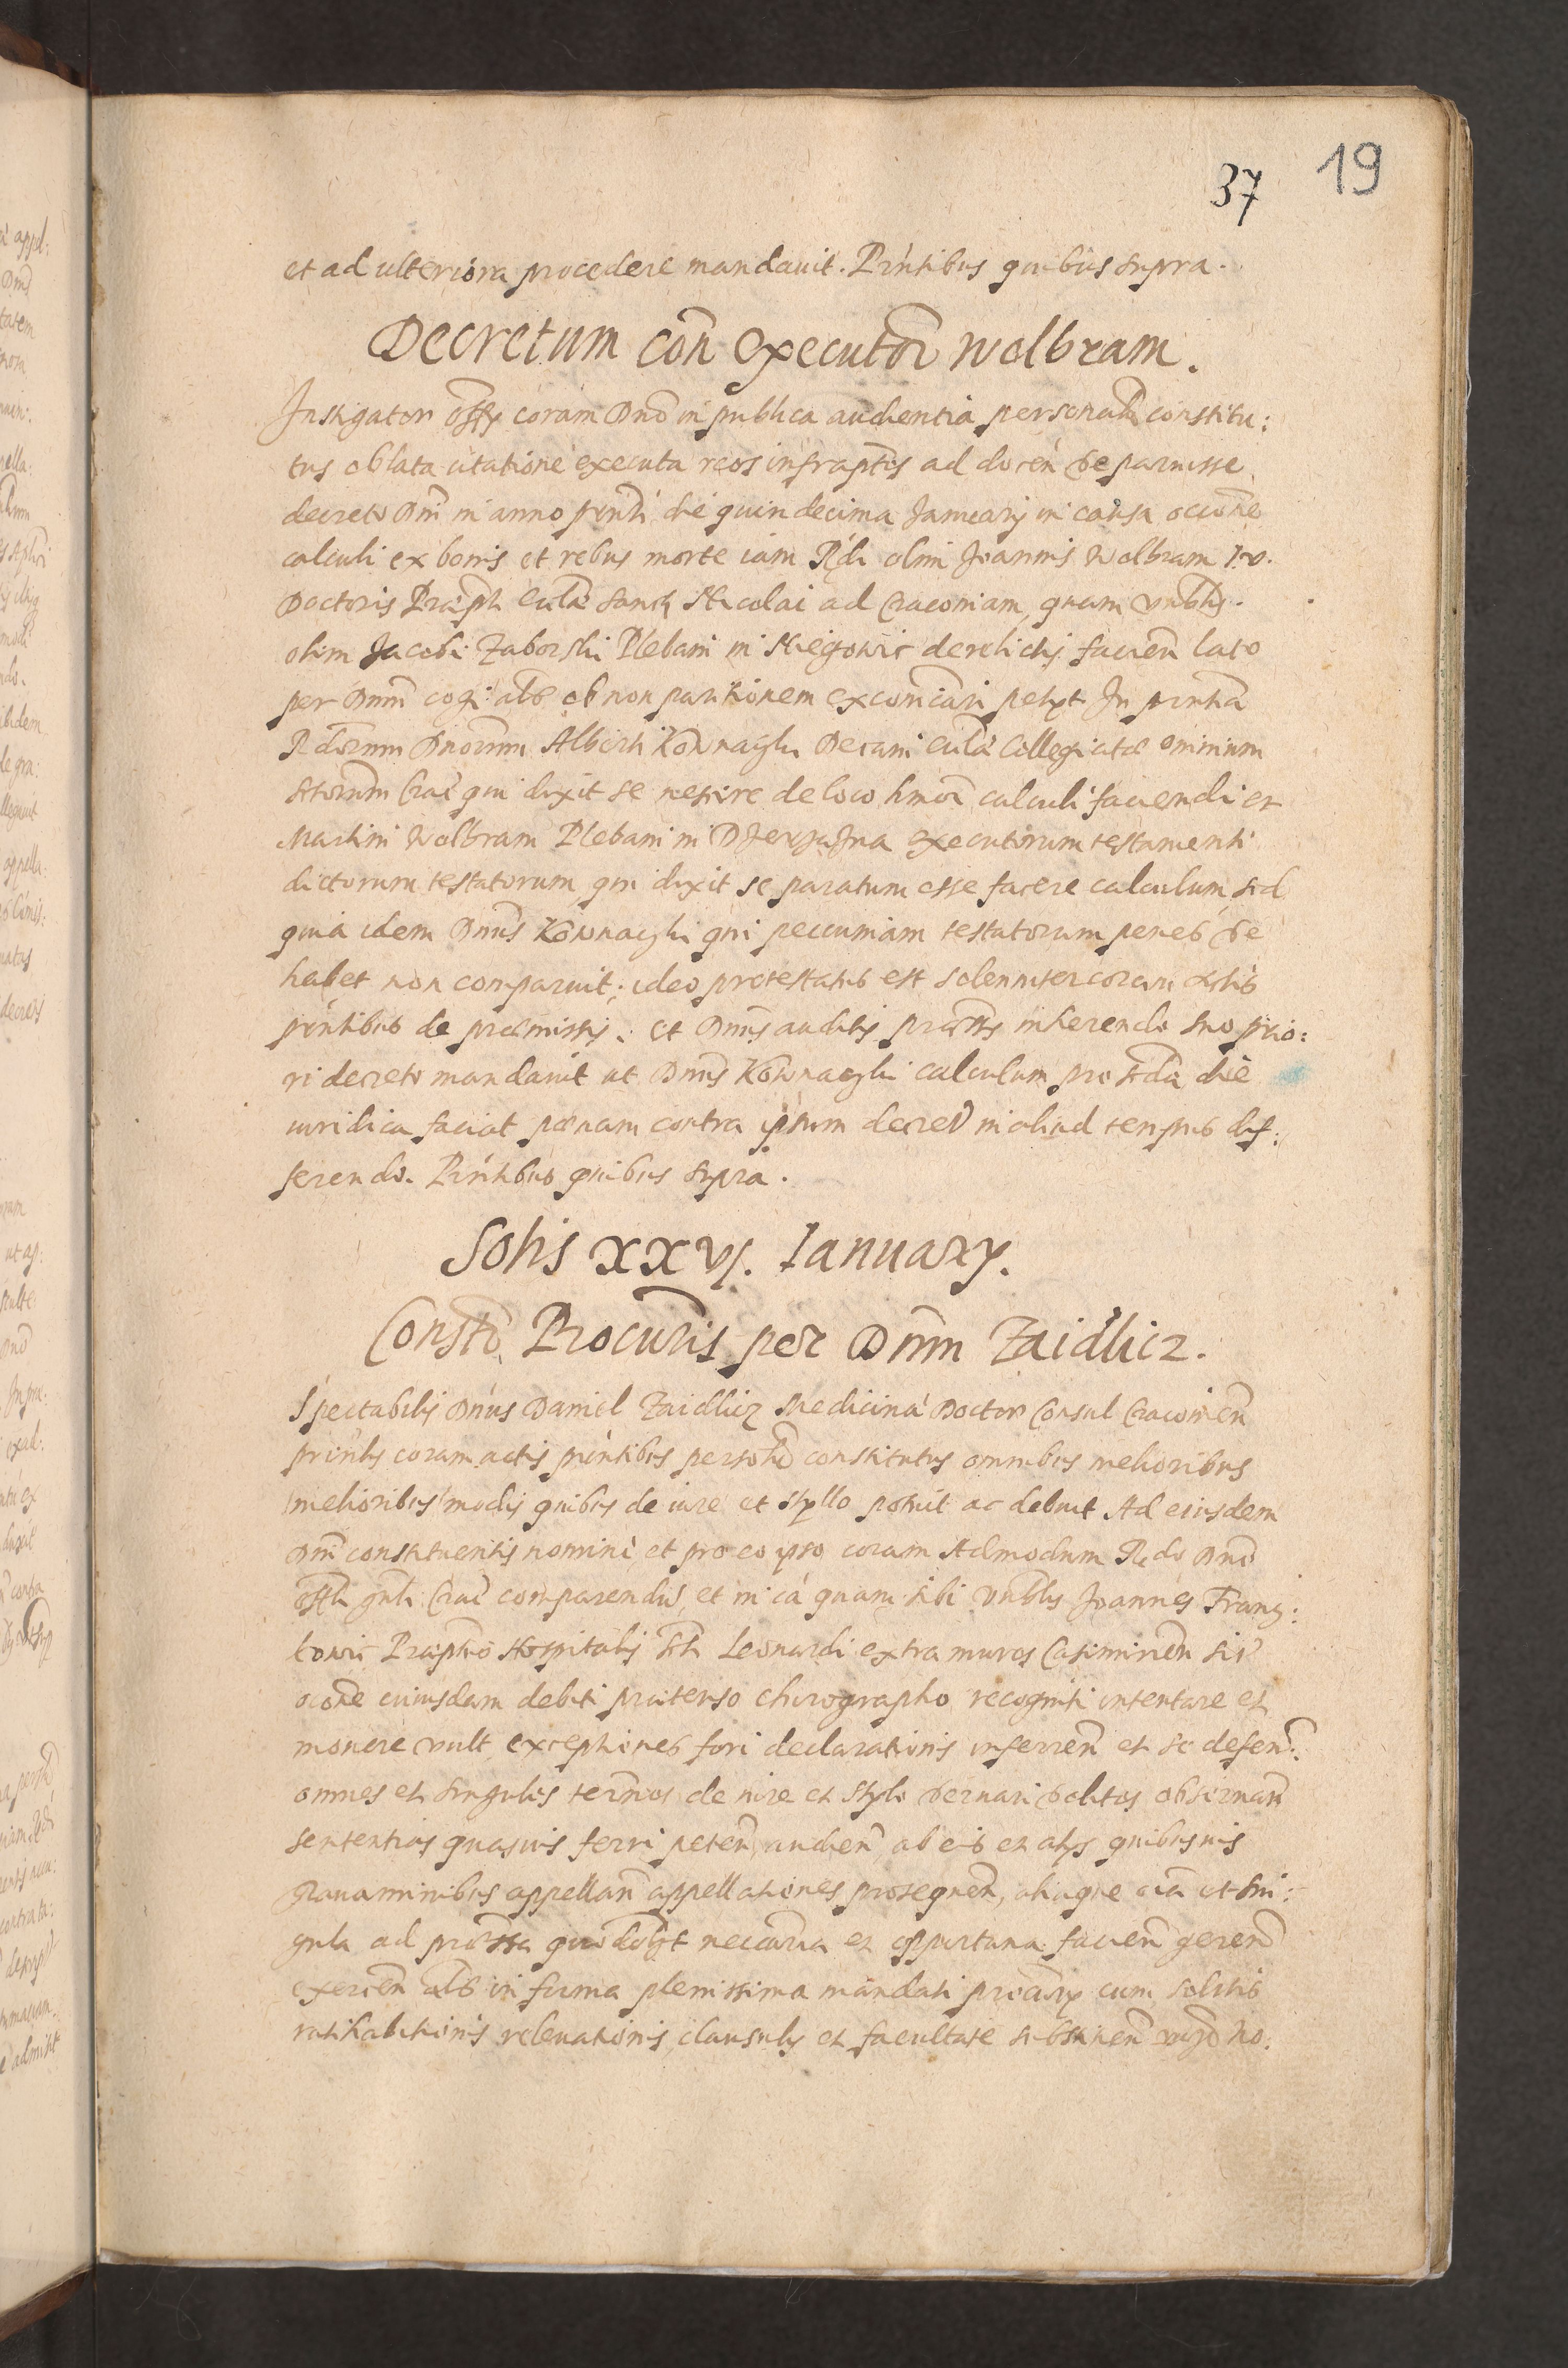 37 19
et ad ulteriora procedere mandauit. Prńtibus quibus supra.
Decretum con̄ Executor̄ Wolbram.
Instigator offy coram Dno in publica audientia personalr̄ constitu:
tus oblata citatione executa reos infraptōs ad docen̄ de paruisse
decreto Dni in anno prnti die quindecima January in causa occōne
calculi ex bonis et rebus morte iam Rdi olim Joannis Wolbram I.V.
Doctoris Præpti Ecclæ Sancti Nicolai ad Cracouiam, quam Vnblis
olim Jacobi Zaborski Plebani in Niegowic derelictis facien̄ lato
per Dnum cogi: als ob non paritionem excomicari petyt In prntia
Rdorum Dnorum Alberti Kownaczki Decani Ecclæ Collegiatæ omnium
Storum Crac̄ qui dixit se nescire de loco hmoi calculi faciendi et
Martini Wolbram Plebani in executorum testamenti
dictorum testatorum qui dixit se paratum esse facere calculum, sed
quia idem Dnus Kownaczki qui peccuniam testatorum penes se
habet non comparuit; ideo protestatus est solenniter coram actis
prńtibus de præmissis. et Dnus auditis præmssis inherendo suo prio:
ri decreto mandauit ut Dnus Kownaczki calculum pro scda die
iuridica faciat pœnam contra ipsum decreti in aliud tempus dif:
ferendo. Prńtibus quibus supra.
Solis XXVI. Ianuary.
Constō Procuris per Dnm Zaidlicz.
Spectabilis Dnus Daniel Zaidlicz Medicinæ Doctor Consul Cracouien̄
prńtis coram actis prńtibus personlr̄ constitutus omnibus melioribus
(melioribus) modis quibus de iure et styllo potuit ac debuit Ad eiusdem
Dni constituentis nomine, et pro eo ipso coram Admodum Rdo Dno
offli gnli Crac̄ comparendū, et in cā quam sibi Vnblis Joannes Franc:
kowic Præptus Hospitalis Sti Leonardi extra muros Casimirien̄ siti
occōne cuiusdam debiti prætenso chirographo recogniti intentare et
mouere vult exceptiones fori declarationis inferren̄ et se defen̄:
omnes et singulos termnos de iure et stylo seruari solitos obseruan̄
sententias quasuis ferri peten̄, audien̄, ab eis et alys quibusuis
grauaminibus appellan̄ appellationes prosequen̄, aliaque oīa et sin:
gula ad præmssa quomodolibet neccaria et opportuna facien̄ geren̄
exercen̄ als in forma plenissima mandati procury cum solitis
ratihabitionis releuationis clausulis et facultate substituen̄ no: